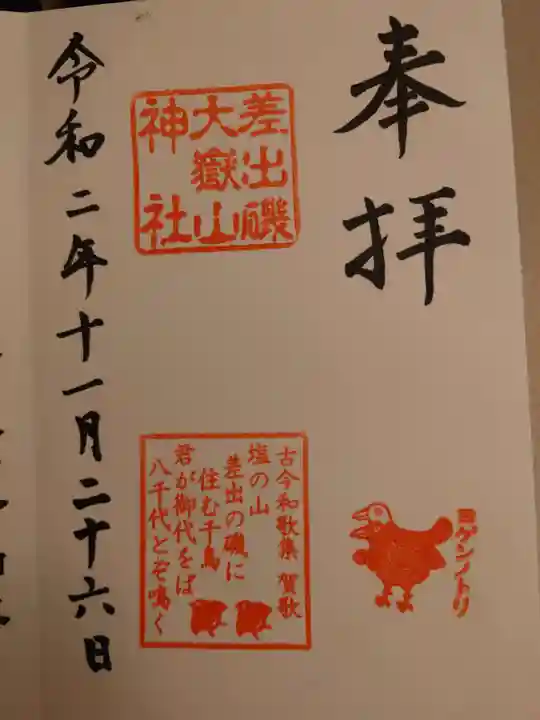 奉拝
ヨゲンノトリ
差出磯
大嶽山
神社
古今和歌集 賀歌
塩の山
差出の磯に
住む千鳥
君が御代をば
八千代とぞ鳴く
令和二年十一月二十六日